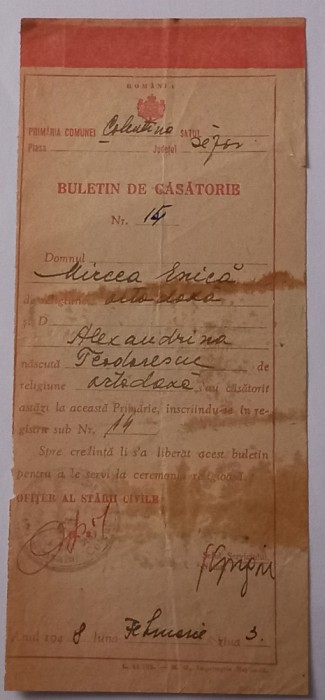 ROMÂNIA
PRIMĂRIA COMUNEI Colentina SATUL
Plasa Județul
BULETIN DE CĂSĂTORIE
Nr. 14
Domnul
Mircea Enică
de religiune ortodoxa
și D
Alexandrina
născută Teodorescu de
religiune ortodoxă, s'au căsătorit
astăzi la această Primărie, înscriindu-se în re-
gistru sub Nr. 14
Spre credință li s'a liberat acest buletin
pentru a le servi la ceremonia religioasă.
OFIȚER AL STĂRII CIVILE
Anul 194 8 luna Februarie ziua 3.